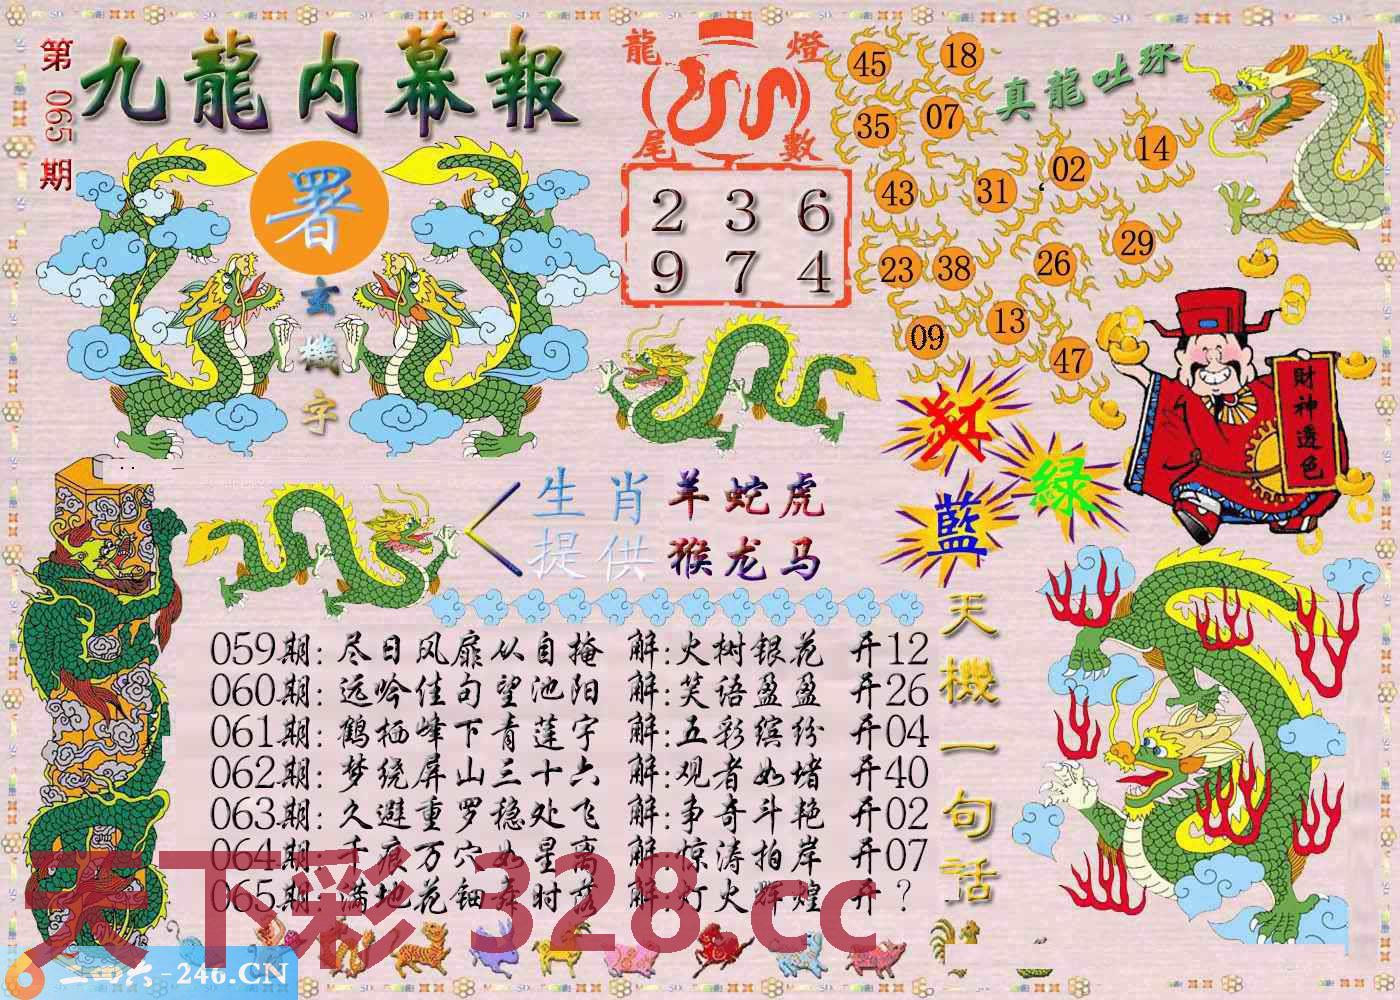 第065期
九龍内幕報
署
玄機字
龍燈
尾數
2 3 6
9 7 4
真龍吐珠
45 18
35 07
14
02
43 31
29
23 38 26
13
09 47
財神透色
紅
绿
藍
生肖 羊蛇虎
提供 猴龙马
天機一句話
059期: 尽日风扉从自掩 解:火树银花 开12
060期: 远吟佳句望池阳 解:笑语盈盈 开26
061期: 鹤栖峰下青莲宇 解:五彩缤纷 开04
062期: 梦绕屏山三十六 解:观者如堵 开40
063期: 久避重罗稳处飞 解:争奇斗艳 开02
064期: 千痕万穴如星离 解:惊涛拍岸 开07
065期: 满地花钿舞时落 解:灯火辉煌 开 ?
天下彩 328.cc
二四六-246.CN